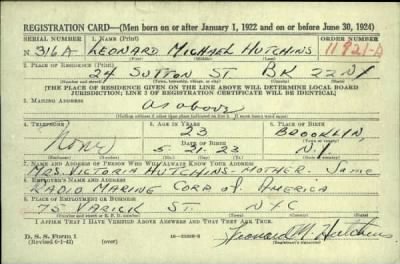 REGISTRATION CARD—(Men born on or after January 1, 1922 and on or before June 30, 1924)
SERIAL NUMBER 1. NAME (Print) ORDER NUMBER
N. 316A LEONARD MICHAEL HUTCHINS 11921-A
(First) (Middle) (Last)
2. PLACE OF RESIDENCE (Print)
24 SUTTON ST. BK 22 NY
(Number and street) (Town, township, village, or city) (County) (State)
[THE PLACE OF RESIDENCE GIVEN ON THE LINE ABOVE WILL DETERMINE LOCAL BOARD
JURISDICTION; LINE 2 OF REGISTRATION CERTIFICATE WILL BE IDENTICAL]
3. MAILING ADDRESS
as above
[Mailing address if other than place indicated on line 2. If same insert word same]
4. TELEPHONE 5. AGE IN YEARS 6. PLACE OF BIRTH
None 23 BROOKLYN
DATE OF BIRTH (Town or county)
5 21 23 N.Y.
(Exchange) (Number) (Mo.) (Day) (Yr.) (State or country)
7. NAME AND ADDRESS OF PERSON WHO WILL ALWAYS KNOW YOUR ADDRESS
MRS. VICTORIA HUTCHINS - MOTHER. Same
8. EMPLOYER'S NAME AND ADDRESS
RADIO MARINE CORP of AMERICA
9. PLACE OF EMPLOYMENT OR BUSINESS
75 VARICK ST. NYC
(Number and street or R. F. D. number) (Town) (County) (State)
I AFFIRM THAT I HAVE VERIFIED ABOVE ANSWERS AND THAT THEY ARE TRUE.
D. S. S. Form 1
(Revised 6-1-42) (over) Leonard M. Hutchins
(Registrant's signature)